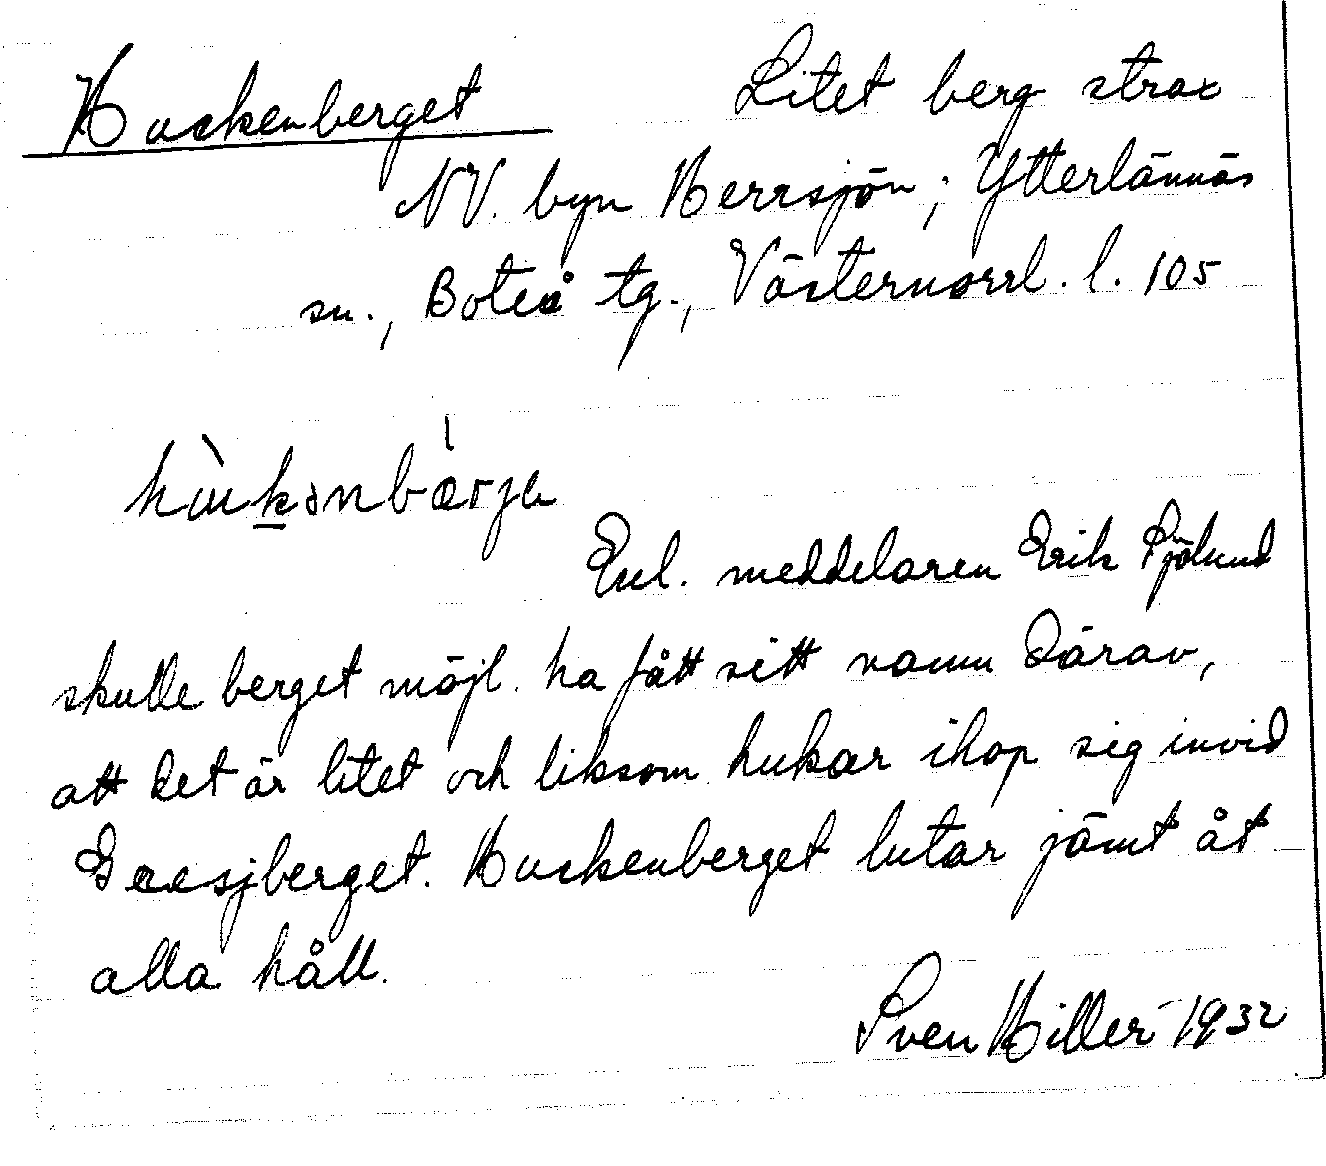 Huckenberget Litet berg strax
NV. byn Herrsjön; Ytterlännäs
sn., Boteå tg., Västernorrl. l. 105
Enl. meddelaren Erik Sjölund
skulle berget möjl. ha fått sitt namn därav,
att det är litet och liksom hukar ihop sig invid
Huckenberget lutar jämt åt
alla håll.
Sven Hiller 1932